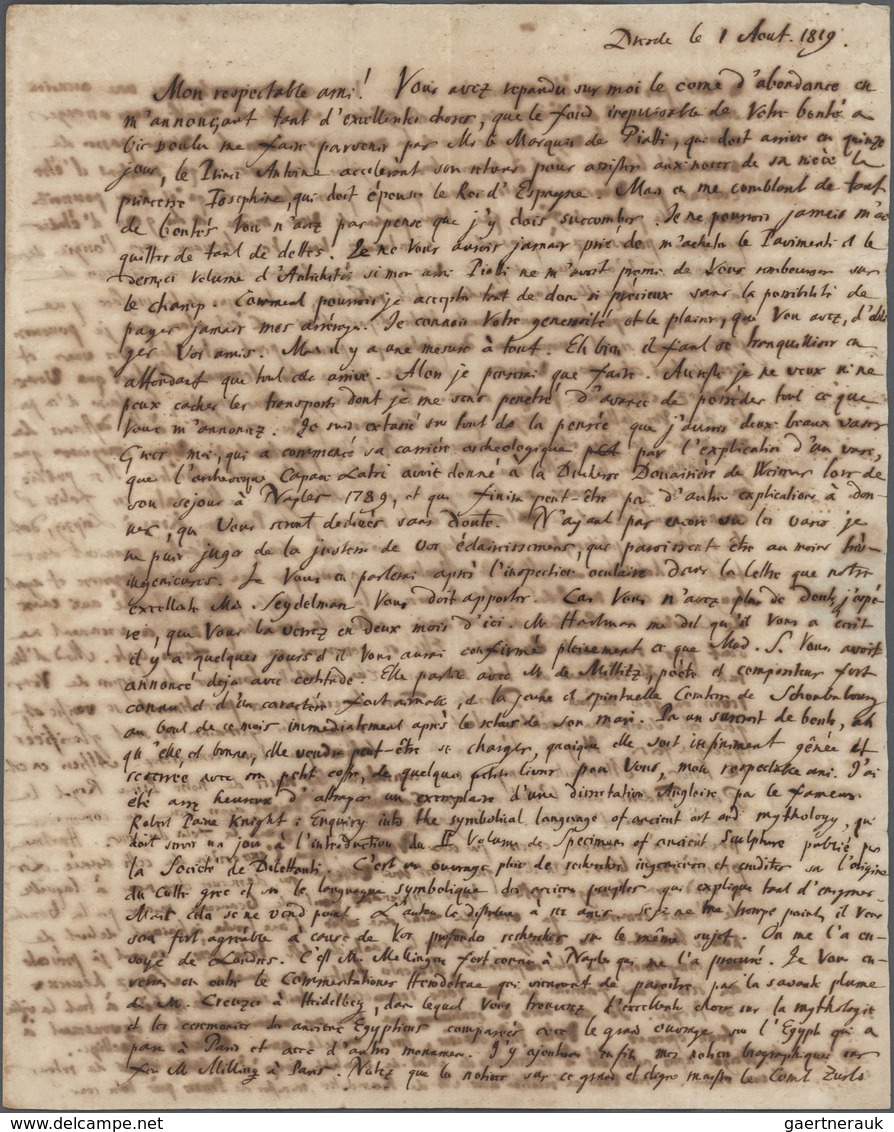 Dresde le 1 Aout. 1819.
Mon respectable ami! Vous avez repandu sur moi le corne d'abondance en
m'annonçant tant d'excellentes choses, que le fond inepuisable de Votre bonté a
bien voulu me faire parvenir par Mr le Marquis de Piatti, qui doit arriver en quinze
jours, le Prince Antoine accelerant son retour pour assister aux noces de sa nièce la
princesse Josephine, qui doit épouser le Roi d'Espagne. Mais en me comblant de tant
de bontés Vous n'avez pas pensé que j'y dois succomber. Je ne pourrois jamais m'ac
quitter de tant de dettes. Je ne Vous aurois jamais prié de m'acheter le Pavimenti et le
dernier volume d'Antichità si mon ami Piatti ne m'avoit promis de Vous rembourser sur
le champ. Comment pourrois je accepter tant de dons si précieux sans la possibilité de
payer jamais mes arrérages. Je connois Votre generosité et le plaisir, que Vous avez, d'obli
ger Vos amis. Mais il y a une mesure à tout. Eh bien il faut se tranquilliser en
attendant que tout cela arrive. Alors je penserai que faire. Au reste je ne veux ni ne
peux cacher les transports dont je me sens penetré d'avance de posséder tout ce que
Vous m'annoncez. Je suis extasié sur tout de la pensée que j'aurois deux beaux vases
Grecs moi, qui a commencé sa carrière archeologique par l'explication d'un vase,
que l'archeveque Capece Latri avoit donné a la Duchesse Douairière de Weimar lors de
son sejour à Naples 1789, et qui finira peut-être par d'autres explications à don-
ner, qui Vous seront dediées sans doute. N'ayant pas encore vu les vases je
ne puis juger de la justesse de vos éclaircissemens, qui paroissent être au moins très
ingenieuses. Je Vous en parlerai après l'inspection oculaire dans la lettre que notre
excellente Md. Seydelman Vous doit apporter. Car Vous n'avez plus de doute, j'espe
re, que Vous la verrez en deux mois d'ici. Mr Hartman me dit qu'il Vous a écrit
il y a quelques jours et il Vous aura confirmé pleinement ce que Mad. S. Vous avoit
annoncé deja avec certitude. Elle partira avec M de Miltitz, poète et compositeur fort
connu et d'un caractère fort aimable, et la jeune et spirituelle Comtesse de Schoenbourg
au bout de ce mois immediatement après le retour de son mari. Par un surcroit de bonté,
qu'elle est bonne, elle voudra peut-être se charger, quoique elle soit infiniment gênée et
resserrée avec son petit coffre, de quelques petits livres pour Vous, mon respectable ami. J'ai
été assez heureux d'attraper un exemplaire d'une dissertation Angloise par le fameux
Robert Paine Knight: Enquiry into the symbolical language of ancient art and mythology, qui
doit servir un jour à l'introduction du II Volume de Specimens of ancient Sculpture publié par
la Société de Dilettanti. C'est un ouvrage plein de recherches ingenieuses et erudites sur l'origine
du culte grec et sur le language symbolique des anciens peuples qui explique tant d'enigmes.
Mais cela se ne vend point. L'auteur le distribue à ses amis. Si je ne me trompe point, il Vous
sera fort agréable à cause de Vos profondes recherches sur le même sujet. On me l'a en-
voyé de Londres. C'est M. Millingen fort connu à Naples qui me l'a procuré. Je Vous en-
verrai en outre le Commentationes Herodoteae qui viennent de paroitre par la savante plume
de M. Creuzer à Heidelberg, dans lequel Vous trouverez d'excellentes choses sur la mythologie
et les ceremonies des anciens Egyptiens comparées avec le grand ouvrage sur l'Egypte qui a
paru à Paris et avec d'autres monumens. J'y ajouterai enfin mes notices biographiques sur
feu M Millin à Paris. Notez que la notice sur ce grand et digne ministre le Comte Zurlo
gaertnerauk